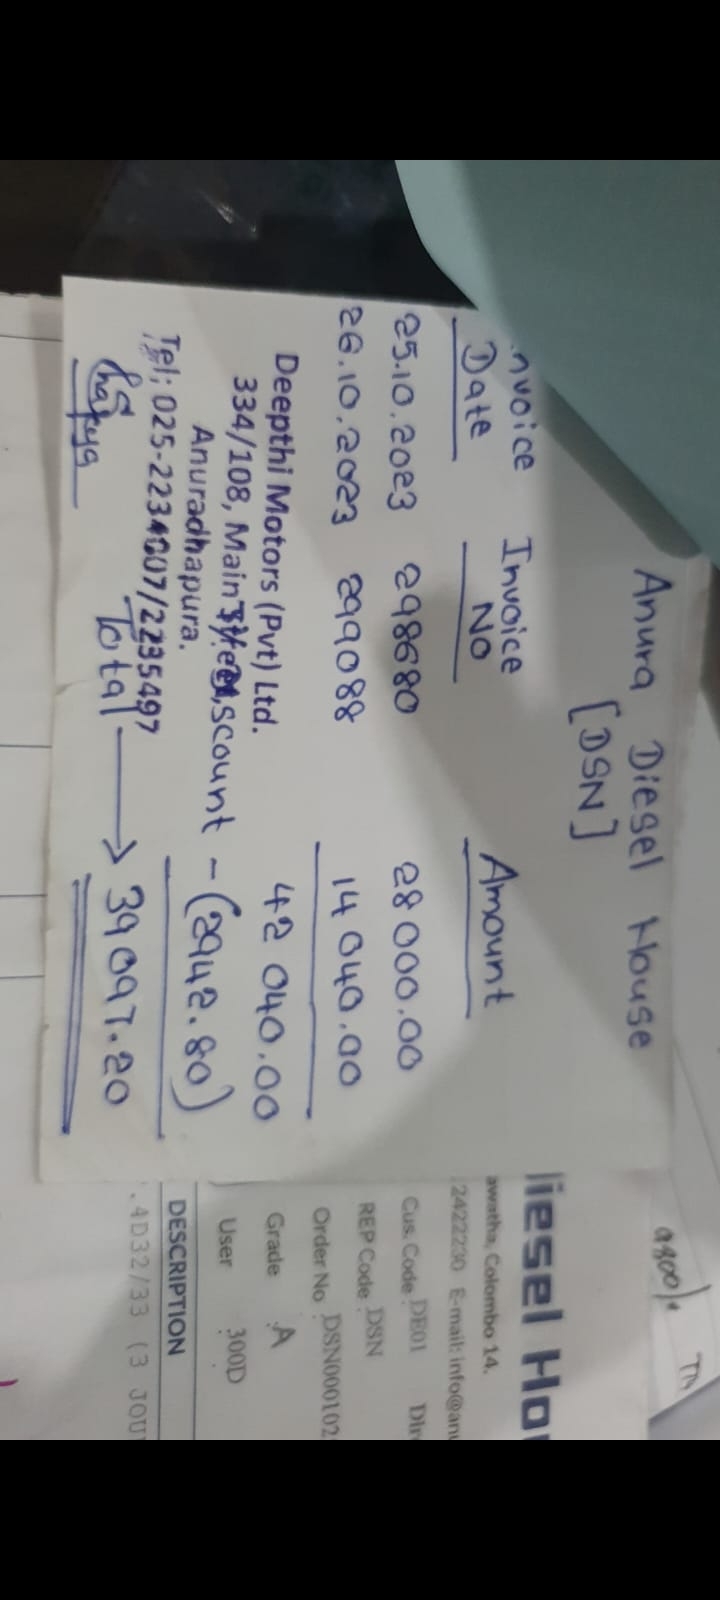 Anura Diesel House
[DSN]
Invoice Invoice Amount
Date No
25.10.2023 298680 28000.00
26.10.2023 299088 14040.00
42 040.00
Deepthi Motors (Pvt) Ltd.
334/108, Main
Anuradhapura.
scount - (2942.80)
Tel; 025-2234007/2235497
Total → 39097.20
9800/=
iesel Ho
awatha, Colombo 14.
2422230 E-mail: info@anu
Cus. Code DE01
REP Code : DSN
Order No DSN000102
Grade : A
User : 300D
DESCRIPTION
.4D32/33 (3 JOU